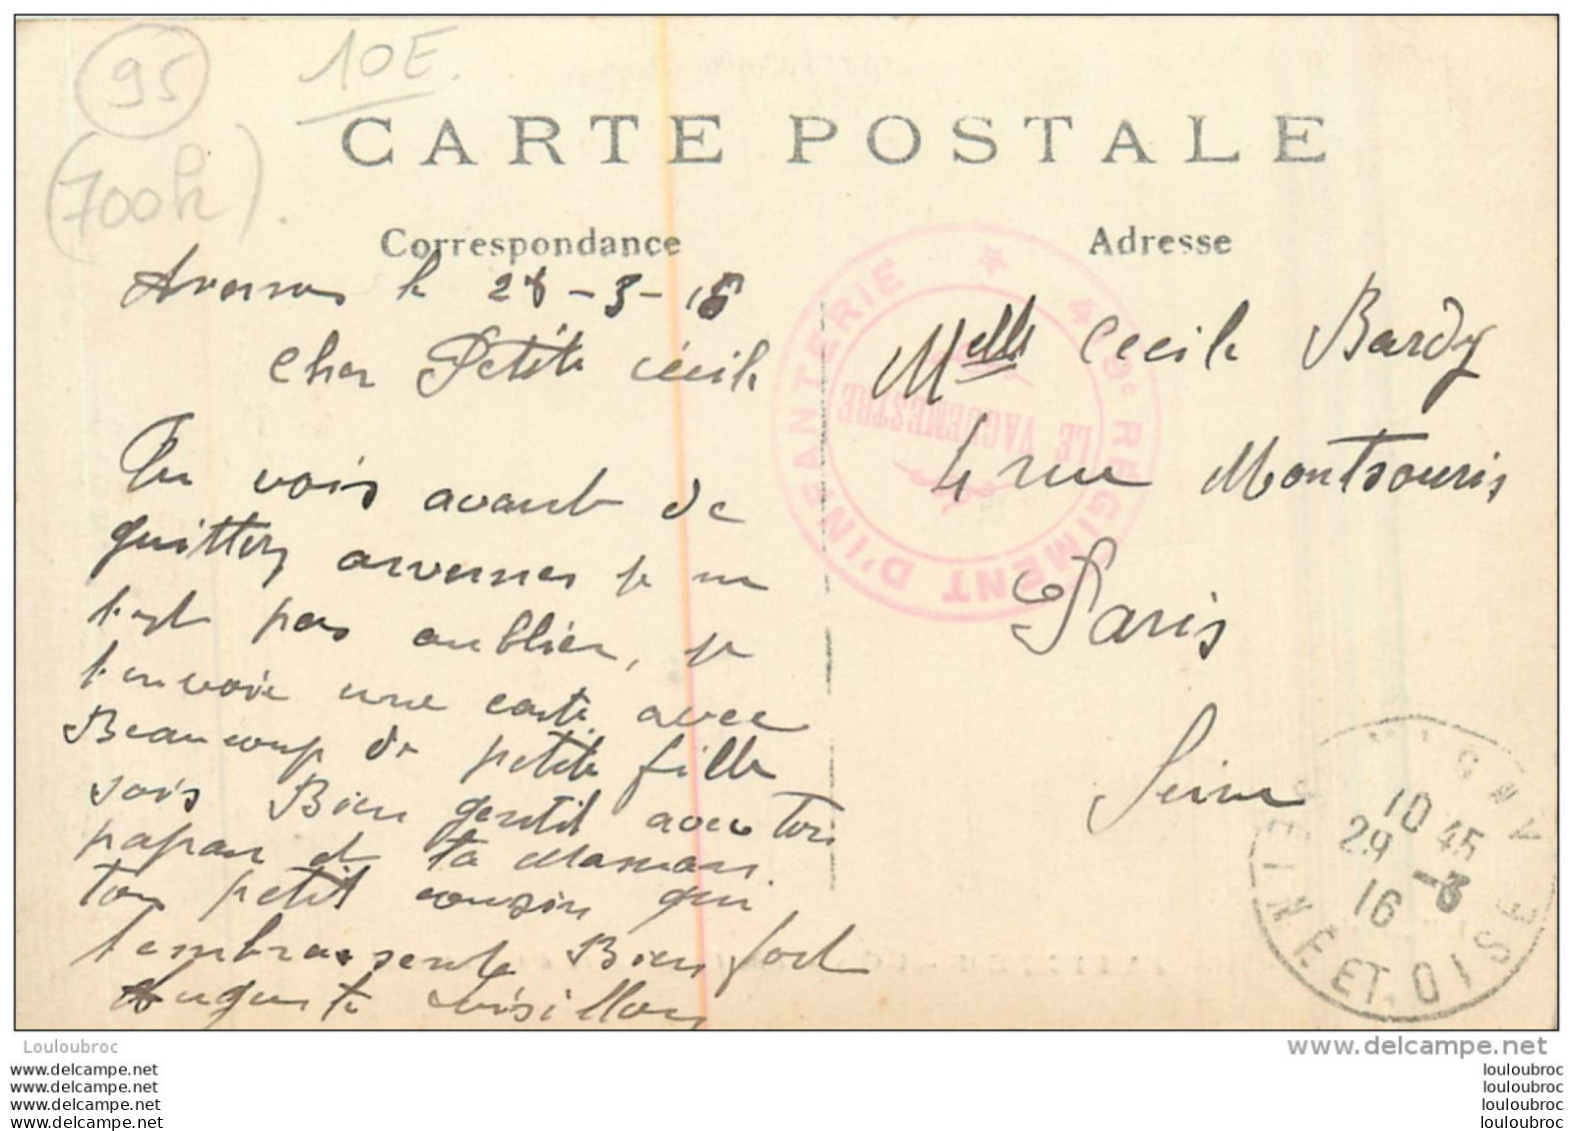 95
10E.
(700h).
CARTE POSTALE
Correspondance
Adresse
le 28-3-16
Cher Petite Cécile
Tu vois avant de
quitter je ne
t'est pas oublier, je
t'envoie une carte avec
Beaucoup de petite fille
sois Bien gentil avec ton
papan et ta Maman
ton petit cousin qui
t'embrassente Bien fort
Auguste
Melle Cecile Bardy
4 rue Montsouris
Paris
Seine
REGIMENT D'INFANTERIE
LE VAGUEMESTRE
10 45
29 -3
16
SEINE-ET-OISE
Louloubroc
www.delcampe.net
www.delcampe.net
www.delcampe.net
www.delcampe.net
www.delcampe.net
louloubroc
louloubroc
louloubroc
louloubroc